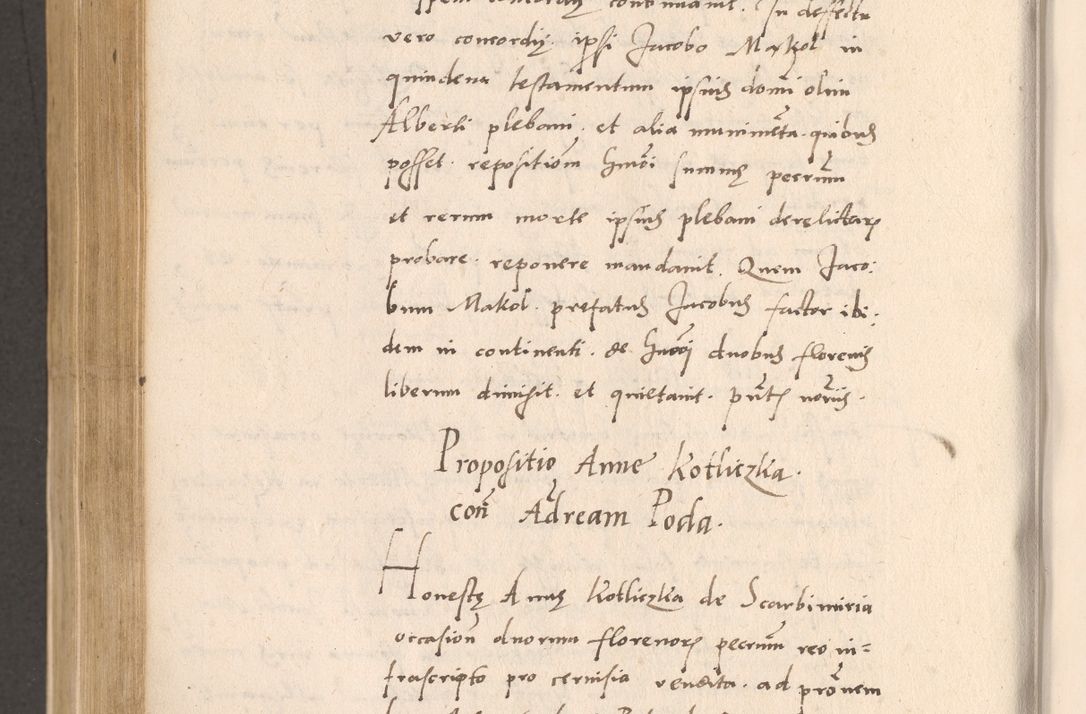 continuavit. In deffectu
vero concordię. ipsi Jacobo Makol in
quindena testamentum ipsius domi olim
Alberti plebani. et alia munimēta. quibus
posset. repositiom hmōi summę pecrum
et rerum morte ipsius plebani derelictarz
probare. reponere mandavit. Quem Jaco:
bum Makol. prefatus Jacobus factor ibi:
dem in continenti. de hmōi duobus florenis
liberum dimisit. et quietavit. pntz noriis.
Propositio Anne Kotliczka.
con Adream Poda.
Honestę Annę Kotliczka de Scarbimiria
occasion duorum florenorz pecrum reo in=
frascripto pro cervisia vendita. ad pronem